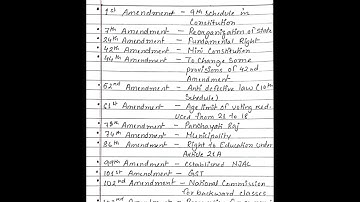 • 1st Amendment - 9th schedule in
Constitution
• 7th Amendment - Reorganization of State
• 24th Amendment - Fundamental Right
• 42nd Amendment - Mini Constitution
• 44th Amendment - To Change some
provisions of 42nd
Amendment
• 52nd Amendment - Anti defective law (10th
Schedule)
• 61st Amendment - Age limit of voting red-
uced from 21 to 18
• 73rd Amendment - Panchayati Raj
• 74th Amendment - Municipality
• 86th Amendment - Right to Education under
Article 21A
• 99th Amendment - established NJAC
• 101st Amendment - GST
• 102nd Amendment - National Commission
for backward classes
Amendment